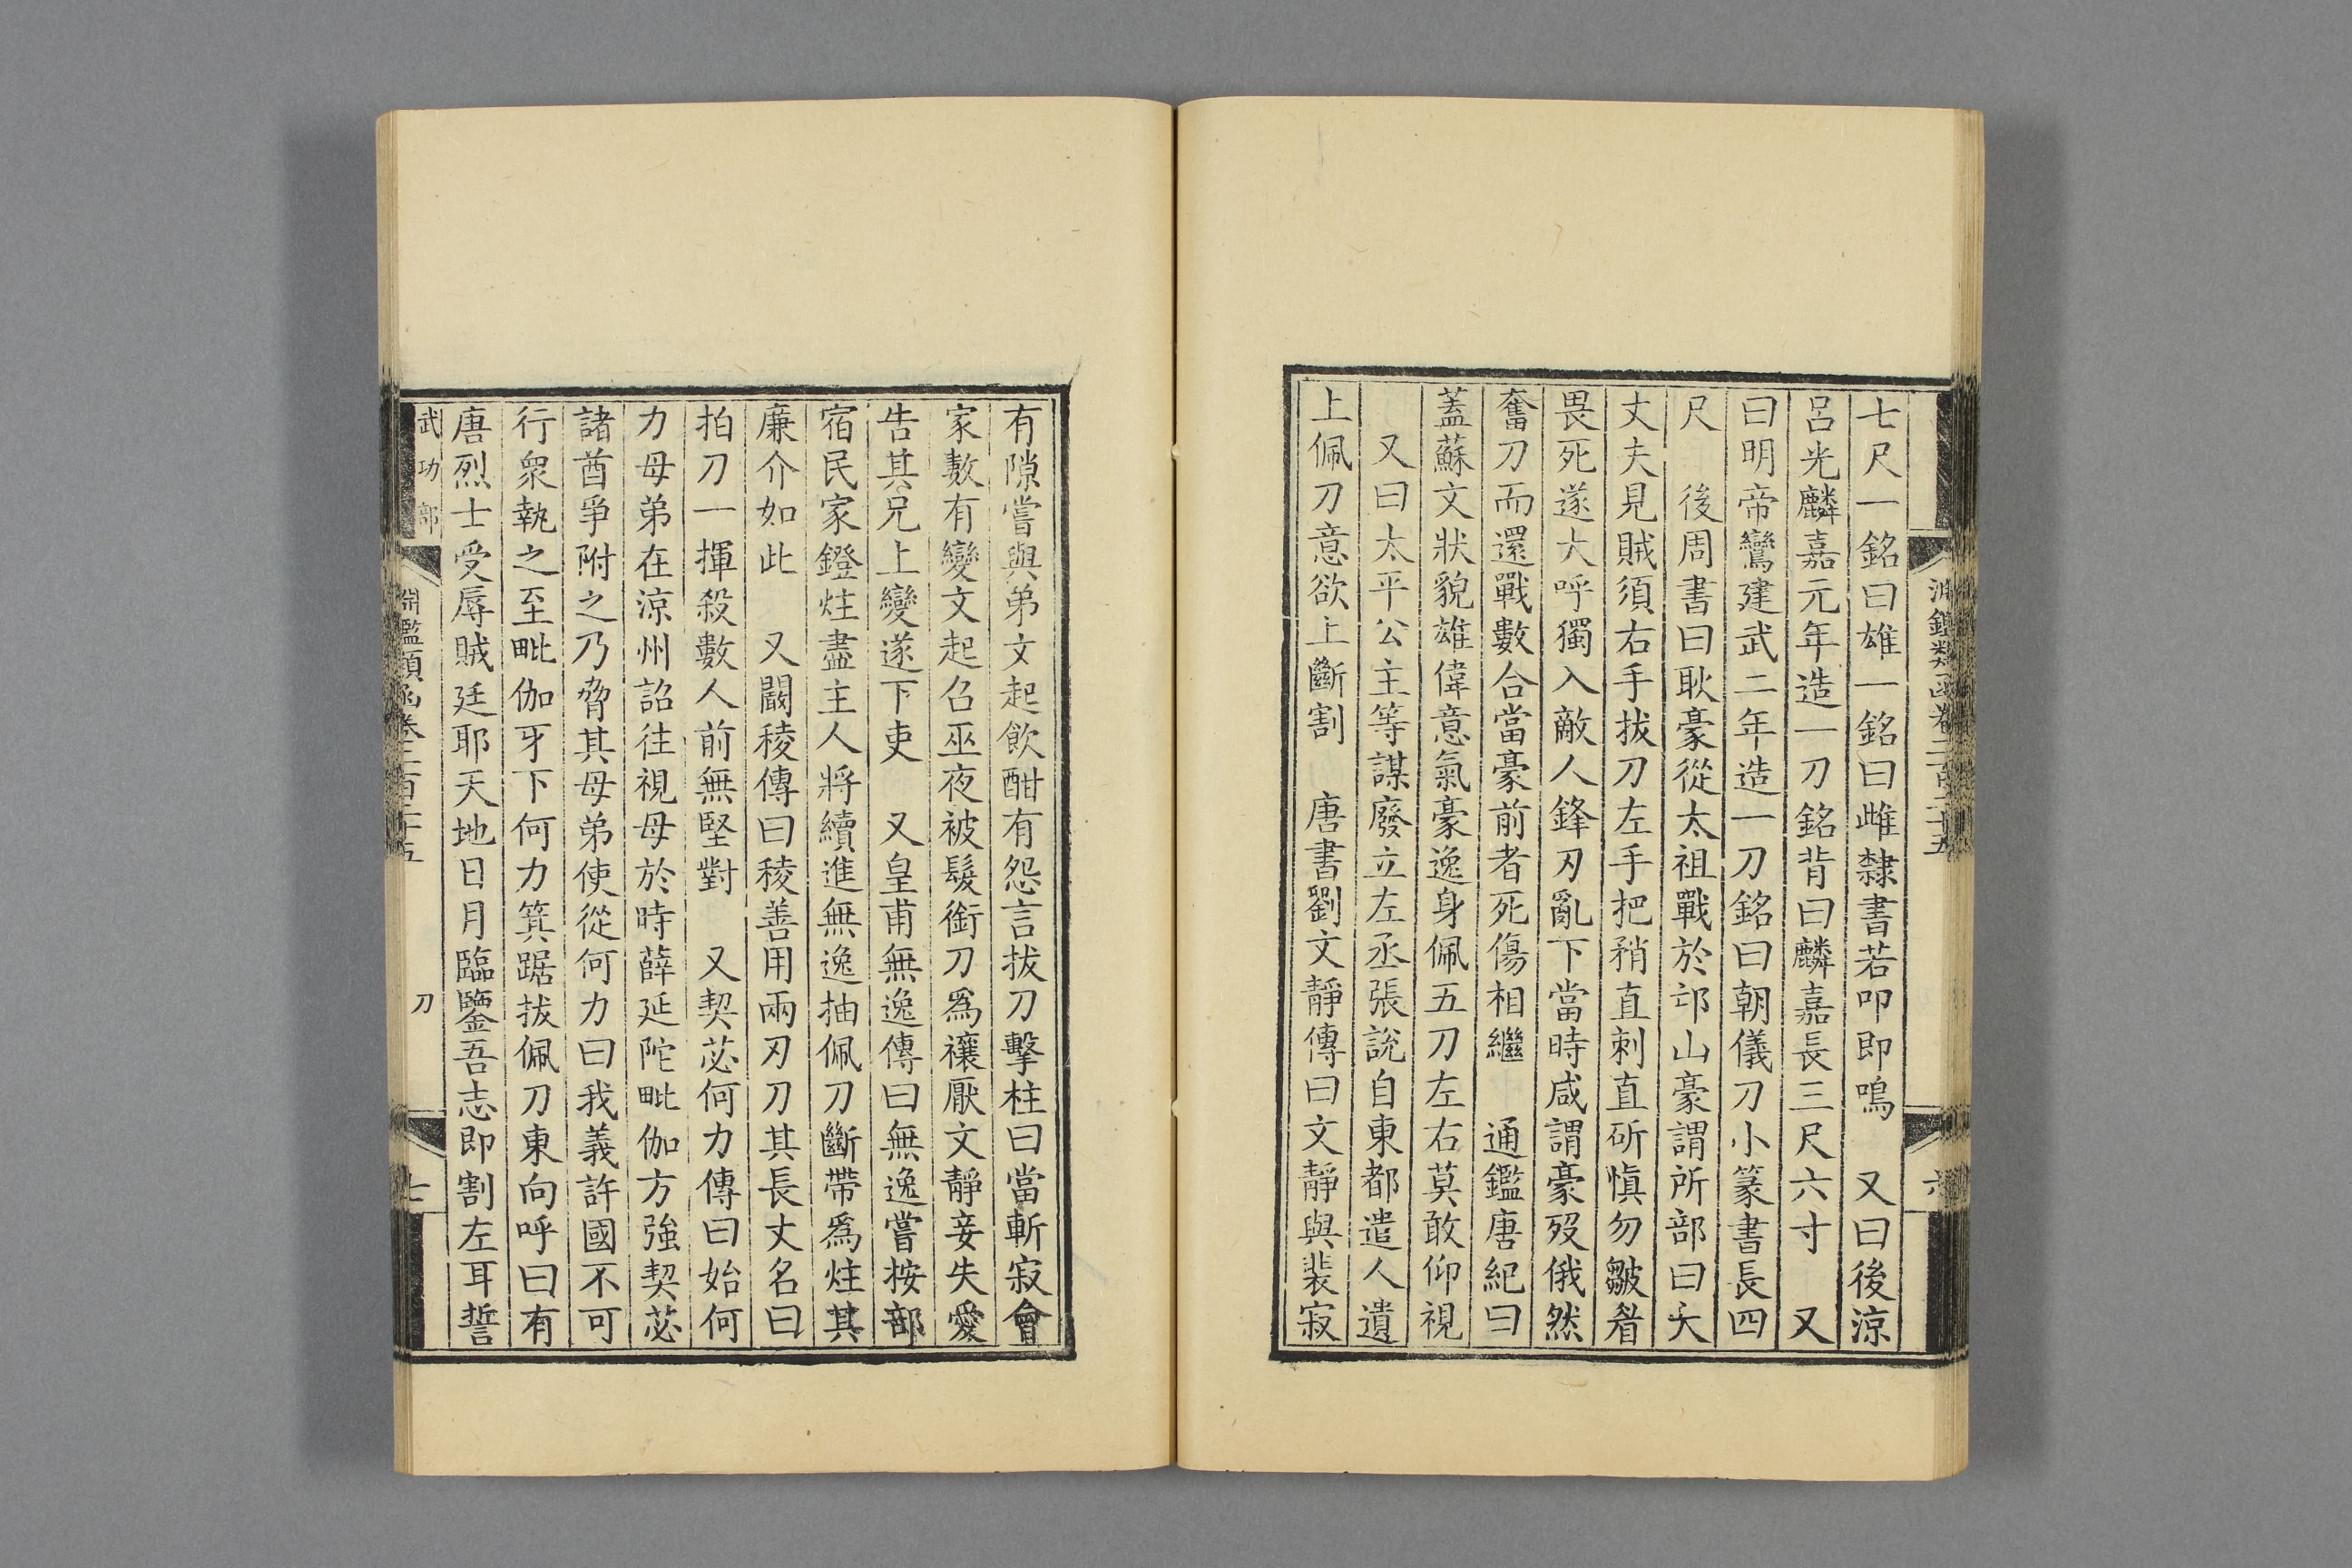 七尺一銘曰雄一銘曰雌隸書若叩即鳴　又曰後涼
呂光麟嘉元年造一刀銘背曰麟嘉長三尺六寸　又
曰明帝鸞建武二年造一刀銘曰朝儀刀小篆書長四
尺　後周書曰耿豪從太祖戰於邙山豪謂所部曰大
丈夫見賊須右手拔刀左手把矟直刺直斫慎勿皺眉
畏死遂大呼獨入敵人鋒刃亂下當時咸謂豪歿俄然
奮刀而還戰數合當豪前者死傷相繼　通鑑唐紀曰
蓋蘇文狀貌雄偉意氣豪逸身佩五刀左右莫敢仰視
又曰太平公主等謀廢立左丞張說自東都遣人遺
上佩刀意欲上斷割　唐書劉文靜傳曰文靜與裴寂
六
有隙嘗與弟文起飲酣有怨言拔刀擊柱曰當斬寂會
家數有變文起召巫夜被髮銜刀爲禳厭文靜妾失愛
告其兄上變遂下吏　又皇甫無逸傳曰無逸嘗按部
宿民家鐙炷盡主人將續進無逸抽佩刀斷帶爲炷其
廉介如此　又闞稜傳曰稜善用兩刃刀其長丈名曰
拍刀一揮殺數人前無堅對　又契苾何力傳曰始何
力母弟在涼州詔往視母於時薛延陀毗伽方強契苾
諸酋爭附之乃脅其母弟使從何力曰我義許國不可
行衆執之至毗伽牙下何力箕踞拔佩刀東向呼曰有
唐烈士受辱賊廷耶天地日月臨鑒吾志即割左耳誓
武功部
淵鑑類函卷二百二十五
刀
七